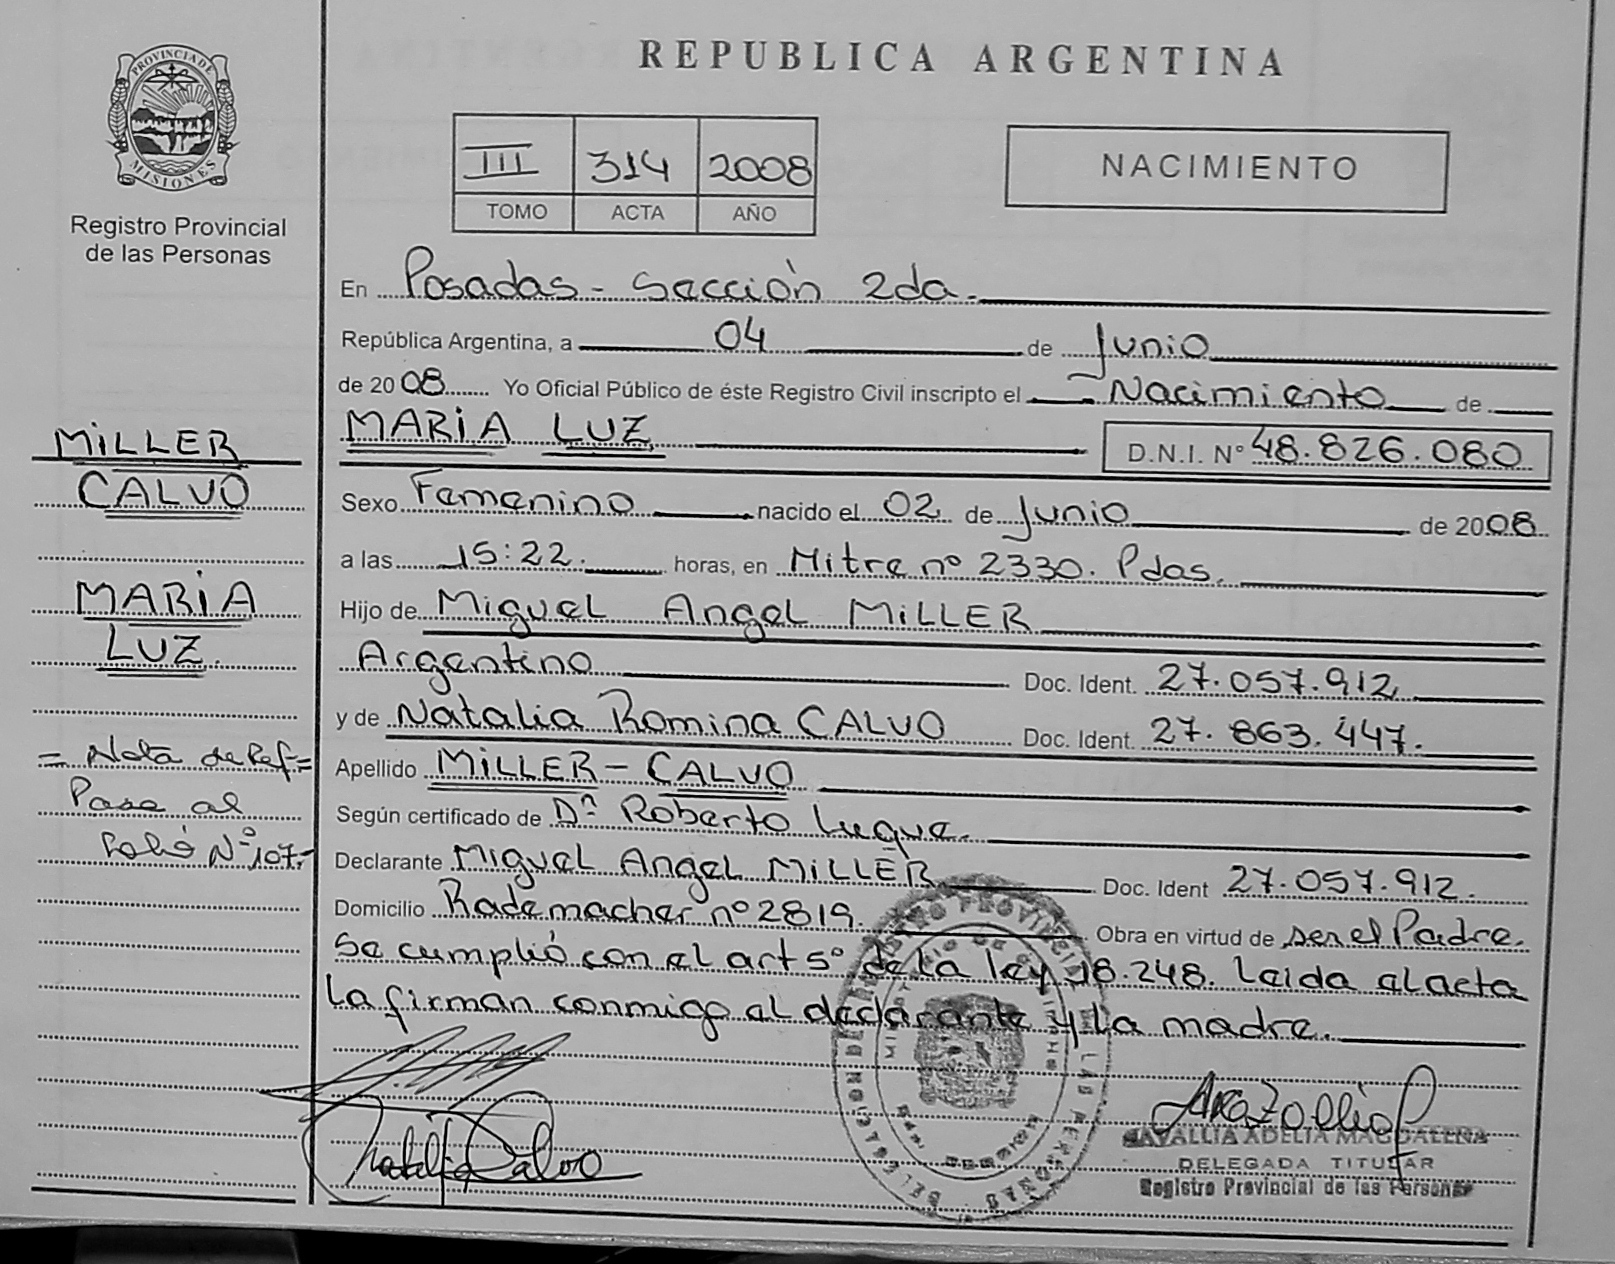 PROVINCIA DE
MISIONES
Registro Provincial
de las Personas
REPUBLICA ARGENTINA
III 314 2008
TOMO ACTA AÑO
NACIMIENTO
En Posadas - Sección 2da.
República Argentina, a 04 de Junio
de 2008 Yo Oficial Público de éste Registro Civil inscripto el Nacimiento de
MARIA LUZ D.N.I. Nº 48.826.080
Sexo Femenino nacido el 02 de Junio de 2008
a las 15:22. horas, en Mitre nº 2330. Pdas.
Hijo de Miguel Angel MiLLER
Argentino Doc. Ident. 27.057.912
y de Natalia Romina CALVO Doc. Ident. 27.863.447.
Apellido MiLLER - CALVO
Según certificado de Dr. Roberto Luque.
Declarante Miguel Angel MiLLER Doc. Ident 27.057.912.
Domicilio Rademacher nº 2819. Obra en virtud de ser el Padre.
Se cumplió con el art 5º de la ley 18.248. Leida el acta
la firman conmigo el declarante y la madre.
MiLLER
CALVO
MARIA
LUZ.
= Nota de Ref =
Pase al
Folio Nº 107.-
Natalia Calvo
ZAVALLIA ADELIA MAGDALENA
DELEGADA TITULAR
Registro Provincial de las Personas